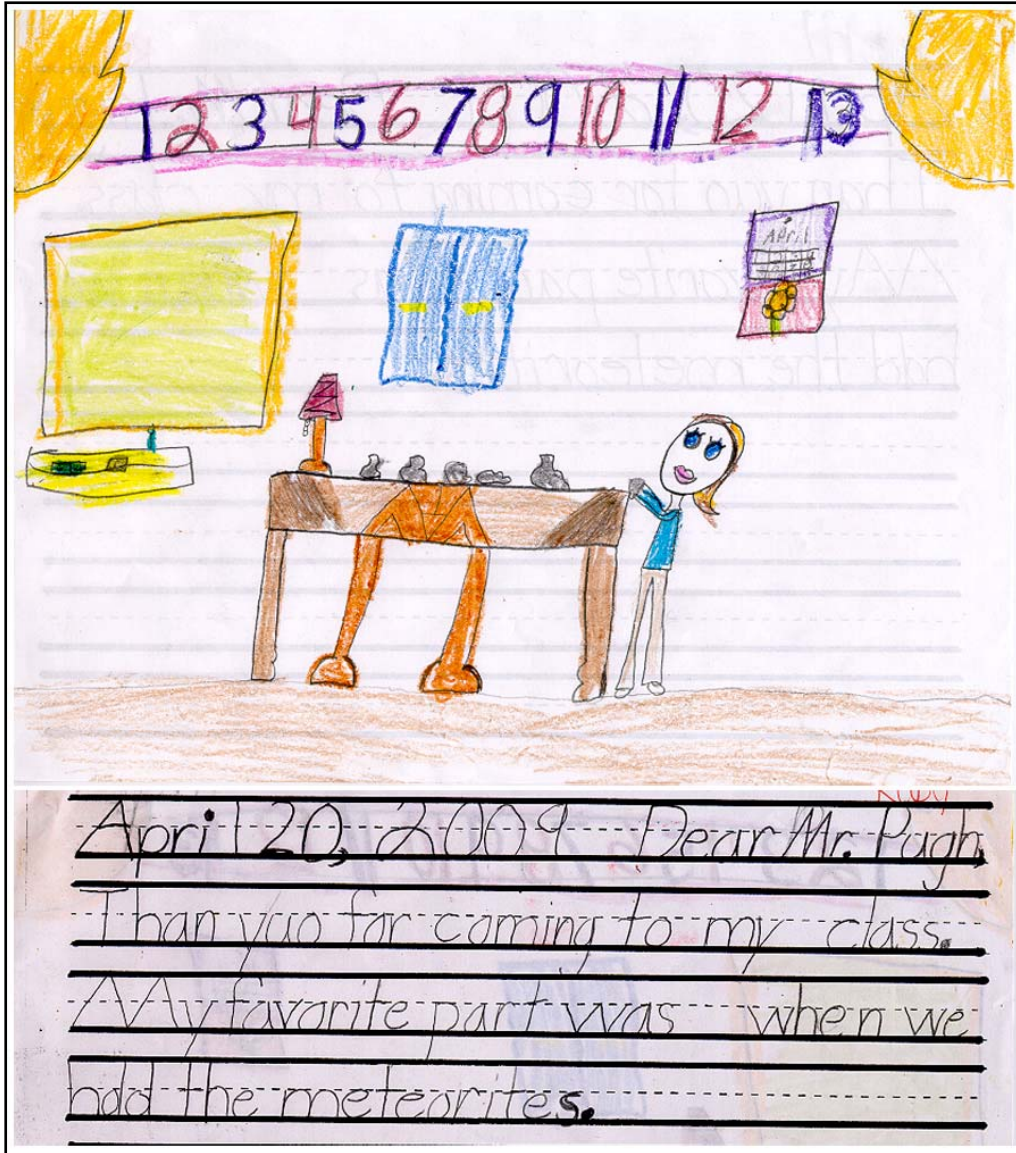 1 2 3 4 5 6 7 8 9 10 11 12 13
April
April 20, 2009 Dear Mr. Pugh,
Than yuo for coming to my class.
My favorite part was when we
the meteorites.